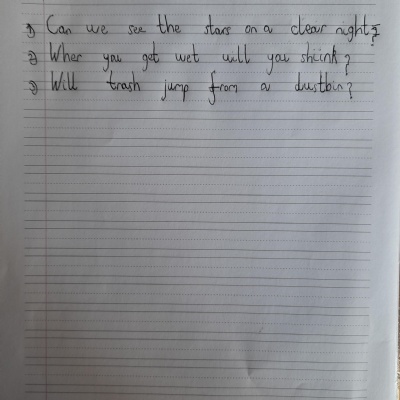 1) Can we see the stars on a clear night?
2) When you get wet will you shrink?
3) Will trash jump from a dustbin?